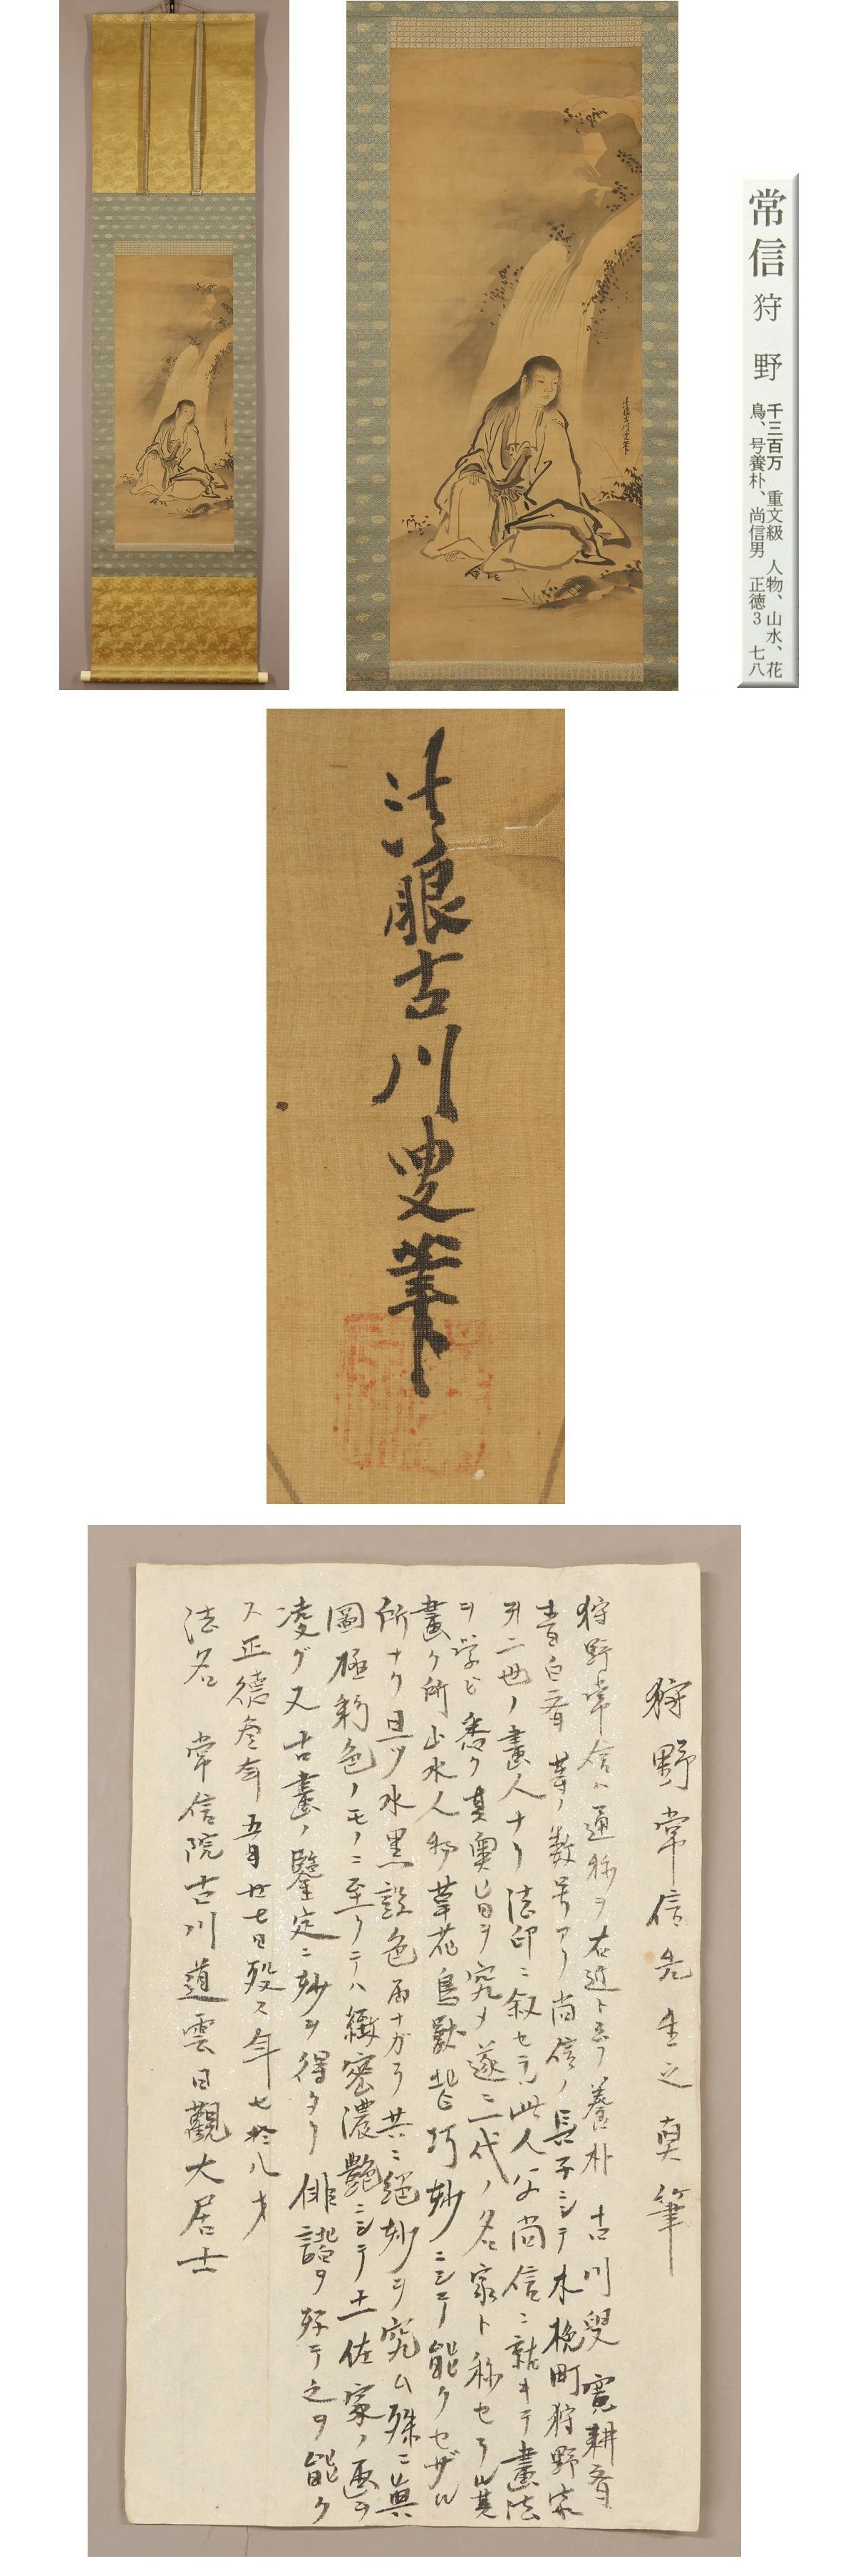 常信 狩野
千三百万 重文級 人物、山水、花
鳥、号養朴、尚信男 正徳3 七八
法眼古川叟筆
狩野常信先生之真筆
狩野常信ハ通称ヲ右近ト云フ養朴 古川叟 寛耕斎
青白斎 等ノ数号アリ尚信ノ長子ニシテ木挽町狩野家
第二世ノ畫人ナリ法印ニ叙セラル此人父尚信ニ就キテ畫法
ヲ学ビ悉ク其奧旨ヲ究メ遂ニ一代ノ名家ト称セラル其
畫ク所山水人物草花鳥獣皆巧妙ニシテ能クセザル
所ナク且ツ水黒設色両ナガラ共ニ絕妙ヲ究ム殊ニ真
圖極彩色ノモノニ至リテハ緻密濃艶ニシテ土佐家ノ画ヲ
凌グ又古畫ノ鑒定ニ妙ヲ得タリ俳諧ヲ好テ之ヲ能ク
ス正徳叁年五月廿七日歿ス年七拾八才
法名 常信院古川道雲日觀大居士